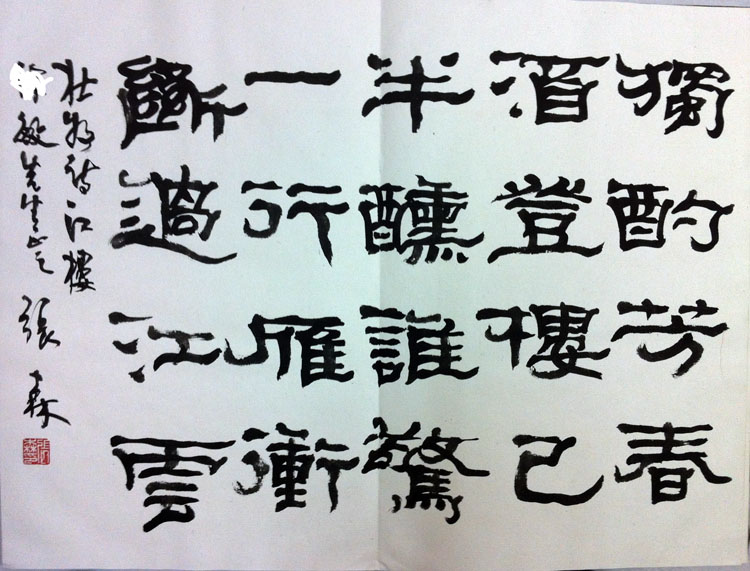 獨酌芳春
酒登樓已
半醺誰驚
一行雁衝
斷過江雲
杜牧詩江樓
敏先生正之 張森